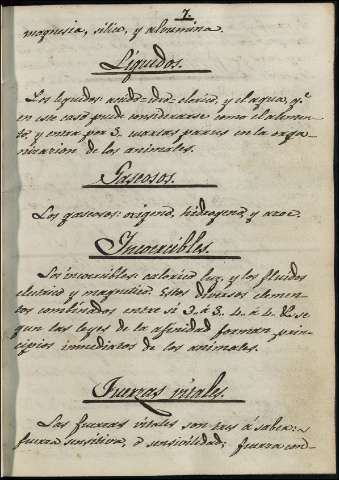 7.
magnesia, silice, y alaumina.
Líquidos.
Los liquidos: acido-idro-clorico, y el agua, q.e
en este caso puede considerarse como el alimen-
to, y entra por 3. cuartas partes en la orga-
nizacion de los animales.
Gaseosos.
Los gaseosos: oxigeno, hidrogeno, y azoe.
Incoercibles.
Los incoercibles: calorico luz, y los fluidos
electrico y magnetico. Estos diversos elemen-
tos combinados entre sí 3. á 3. 4. á 4. &c. se-
gun las leyes de la afinidad forman prin-
cipios inmediatos de los animales.
Fuerzas vitales.
Las fuerzas vitales son tres á saber:
fuerza sensitiva, ó sensivilidad; fuerza con-